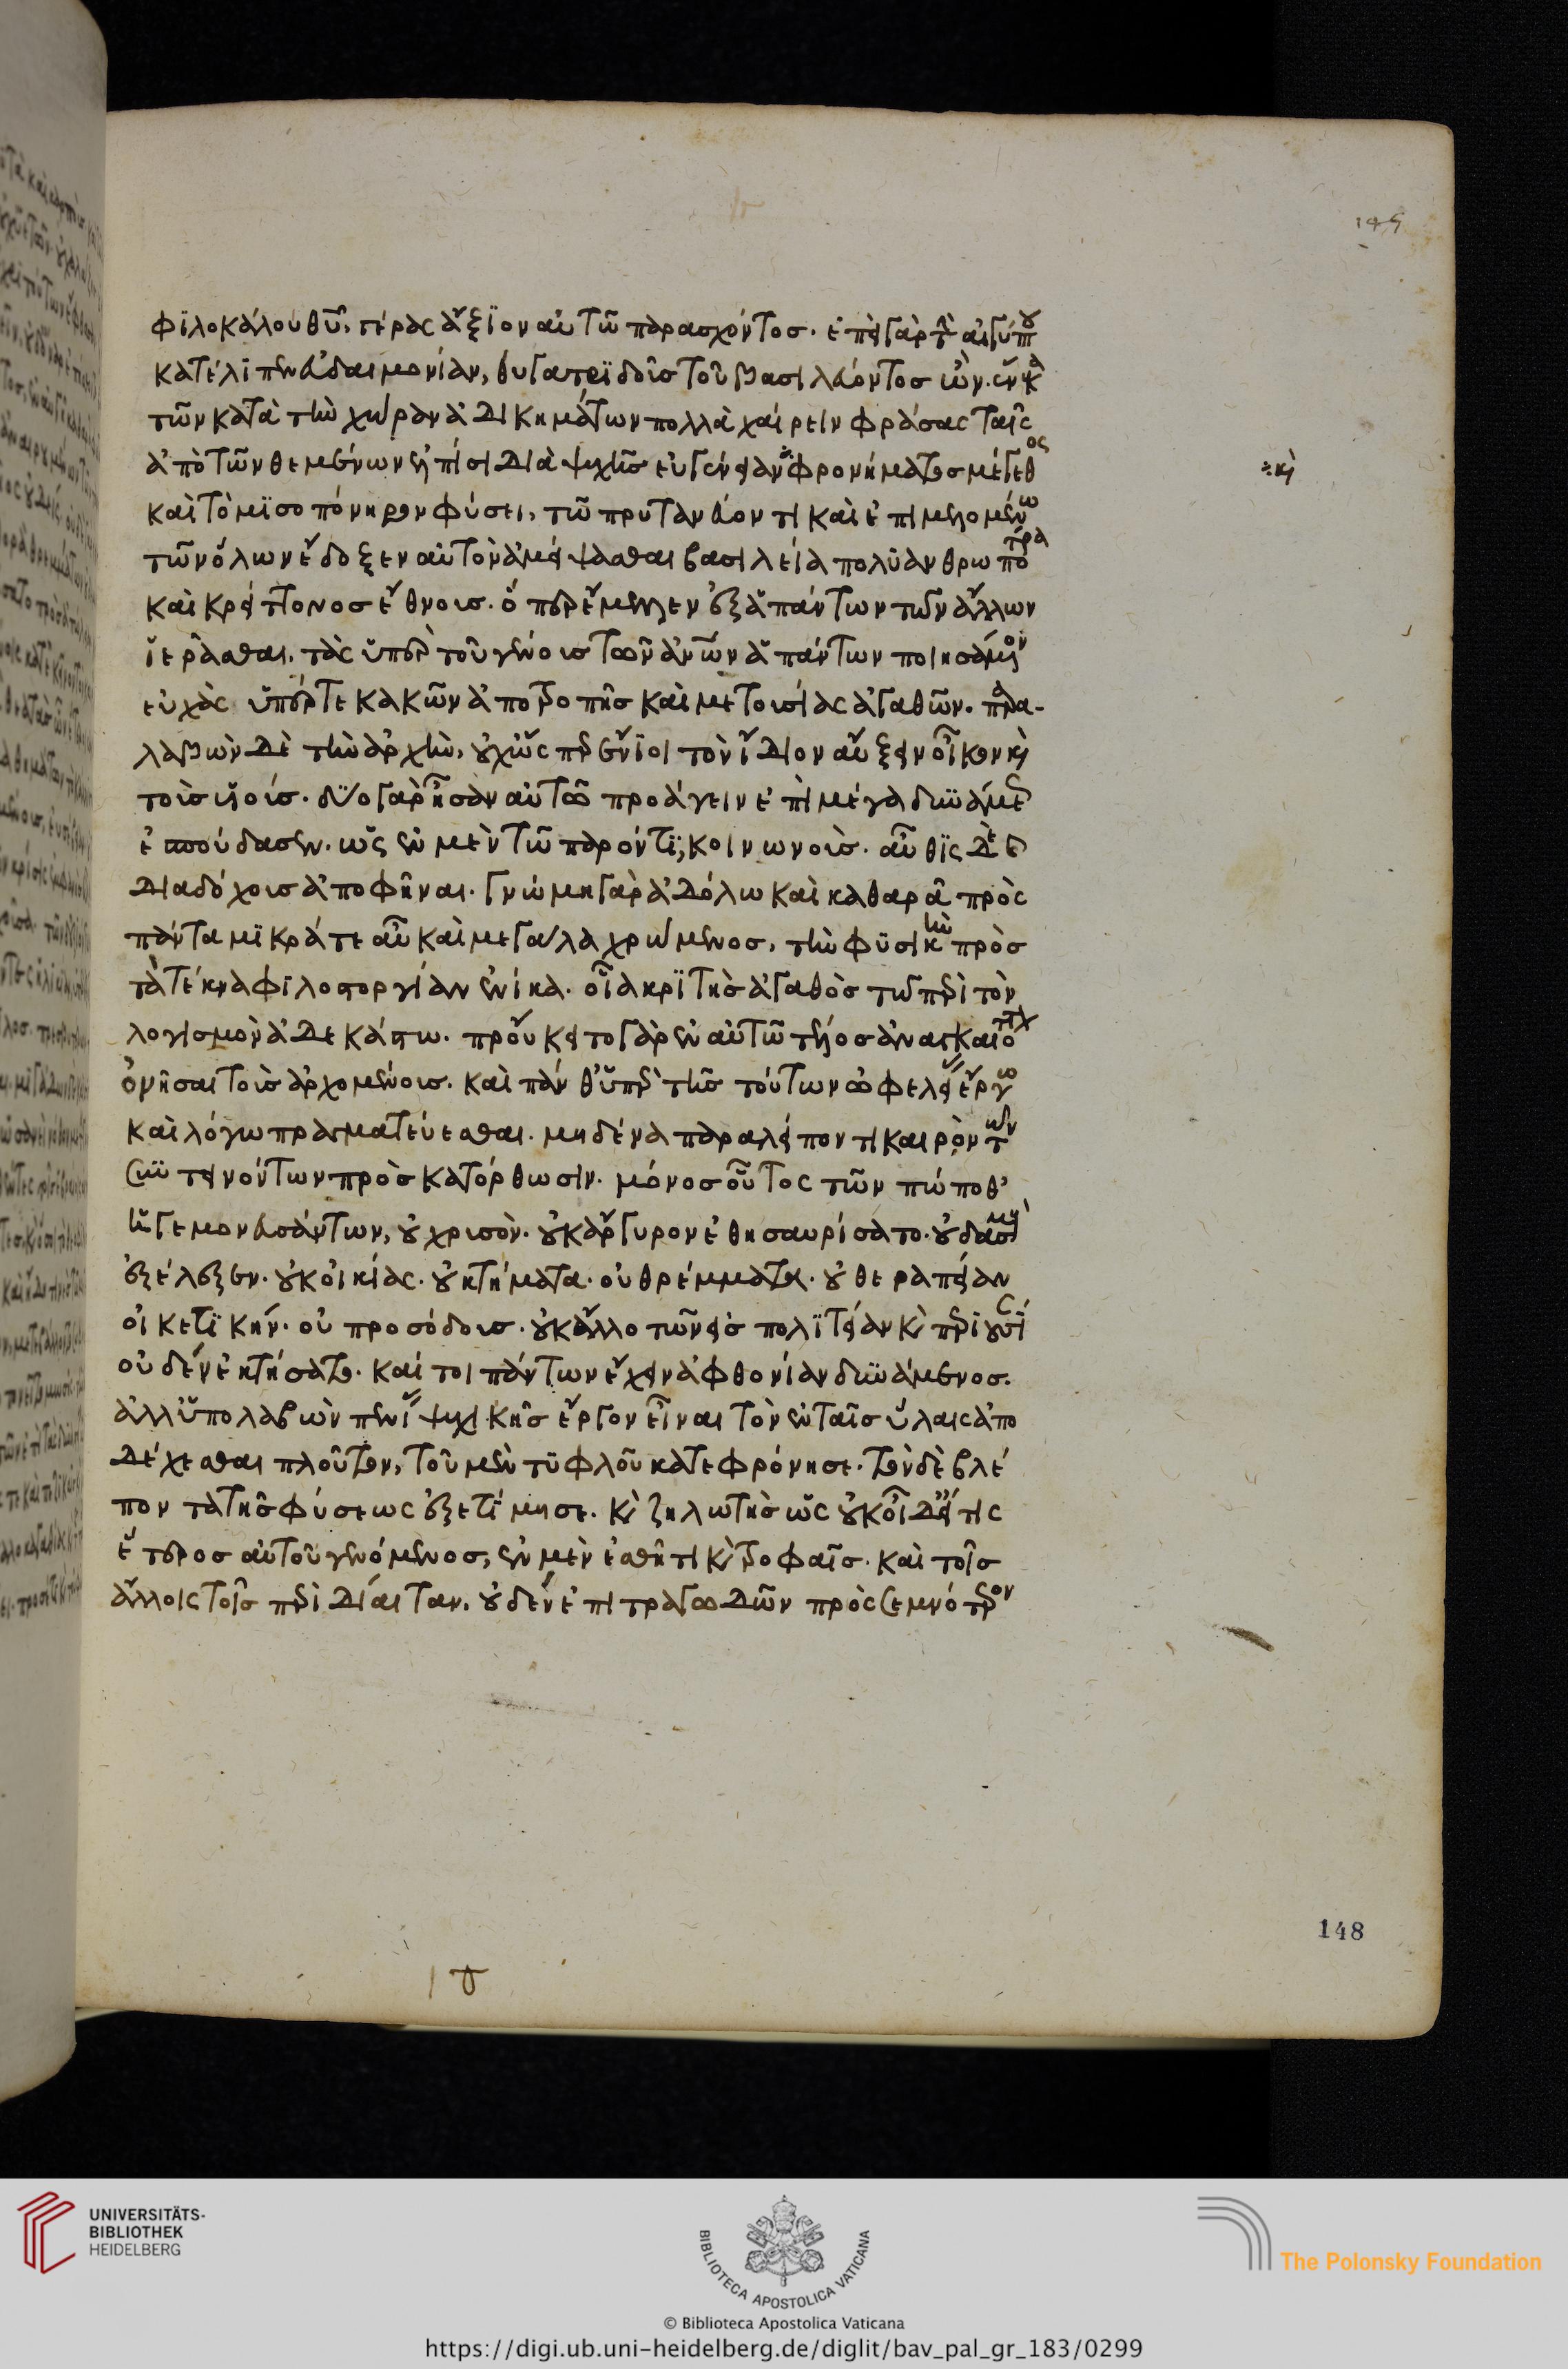 φϊλοκάλου θυ̅, γέρας ἄξϊον αὐτῶ παρασχόντοσ. ἐπεὶ γὰρ τὴν αἰγύπτου
κατέλϊπεν εὐδαιμονίαν, θυγατρϊδοῦσ τοῦ βασιλεύοντοσ ὢν. ἕνεκα
τῶν κατὰ τὴν χώραν ἀδικημάτων πολλὰ χαίρειν φράσας ταῖς
ἀπὸ τῶν θεμένων ἐλπίσι διὰ ψυχῆσ εὐγένειαν φρονήματοσ μέγεθος
κὶ
καὶ τὸ μϊσοπόνηρον φύσει, τῶ πρυτανεύοντι καὶ ἐπιμελομένω
τῶν ὅλων ἔδοξεν αὐτὸν ἀμείψασθαι βασιλεία πολϋανθρωποτέρα
καὶ κρείττονοσ ἔθνουσ. ὅπερ ἔμελλεν ἐξ ἁπάντων τῶν ἄλλων
ἱερᾶσθαι. τὰς ὑπὲρ τοῦ γένουσ τῶν ἀνων ἁπάντων ποιησάμενον
εὐχὰς ὑπέρ τε κακῶν ἀποτροπῆσ καὶ μετουσίας ἀγαθῶν. παρα-
λαβὼν δὲ τὴν ἀρχὴν, οὐχ ὥς περ ἔνϊοι τὸν ἴδιον αὔξειν οἶκον κὶ
τοὺσ υἱούσ. δύο γὰρ ἦσαν αὐτῶ προάγειν ἐπὶ μέγα δυνάμεως
ἐσπούδασεν. ὡς ἐν μὲν τῶ παρόντϊ, κοινωνοὺσ. αὖθϊς δὲ
διαδόχουσ ἀποφῆναι. γνώμη γὰρ ἀδόλω καὶ καθαρᾶ πρὸς
πάντα μϊκρά τε αὖ καὶ μεγάλα χρώμενοσ, τὴν φϋσικὴν πρὸσ
τὰ τέκνα φϊλοστοργίαν ἐνίκα. οἷα κρϊτὴσ ἀγαθὸσ τῶ περὶ τὸν
λογισμὸν ἀδεκάστω. προὔκειτο γὰρ ἐν αὐτῶ τέλοσ ἀναγκαιότατον
ὀνῆσαι τοὺσ ἀρχομένουσ. καὶ πάνθ' ὑπὲρ τῆσ τούτων ὠφελείας ἔργω
καὶ λόγω πραγματεύεσθαι. μηδένα παραλείποντι καιρὸν τῶν
συντεινόντων πρὸσ κατόρθωσιν. μόνοσ οὗτος τῶν πώποθ'
ἡγεμονευσάντων, οὐ χρυσὸν. οὐκ ἄργυρον ἐθησαυρίσατο. οὐ δασμοὺσ
ἐξέλεξεν. οὐκ οἰκίας. οὐ κτήματα. οὐ θρέμματα. οὐ θεραπείαν
οἰκετϊκήν. οὐ προσόδουσ. οὐκ ἄλλο τῶν εἰσ πολϊτείαν κὶ περϊουσί
οὐδὲν ἐκτήσατο. καίτοι πάντων ἔχειν ἀφθονίαν δυνάμενοσ.
ἀλλ' ὑπολαβὼν πενί ψυχικῆσ ἔργον εἶναι τὸν ἐν ταῖσ ὕλαις ἀπο
δέχεσθαι πλοῦτον, τοῦ μὲν τϋφλοῦ κατεφρόνησε. τὸν δὲ βλέ
ποντα τῆσ φύσεως ἐξετίμησε. κὶ ζηλωτὴσ ὡς οὐκ οἶδ' εἴ τις
ἕτεροσ αὐτοῦ γενόμενοσ, ἐν μὲν ἐσθῆτι κὶ τροφαῖσ. καὶ τοῖσ
ἄλλοις τοῖσ περὶ δίαιταν. οὐδὲν ἐπιτραγωδῶν πρὸς σεμνότερον
148
UNIVERSITÄTS-
BIBLIOTHEK
HEIDELBERG
BIBLIOTECA APOSTOLICA VATICANA
The Polonsky Foundation
© Biblioteca Apostolica Vaticana
https://digi.ub.uni-heidelberg.de/diglit/bav_pal_gr_183/0299